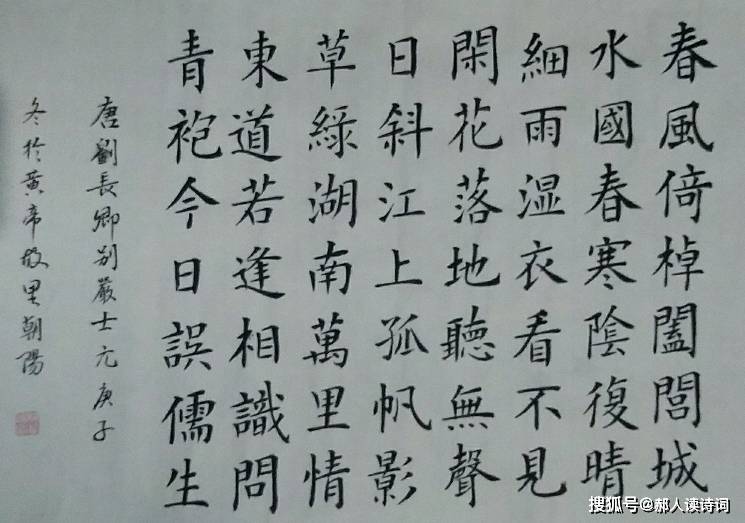 春風倚棹闔閭城
水國春寒陰復晴
細雨湿衣看不見
閑花落地聽無聲
日斜江上孤帆影
草綠湖南萬里情
東道若逢相識問
青袍今日誤儒生
唐劉長卿別嚴士元庚子
冬於黃帝故里朝陽
搜狐号@郝人读诗词